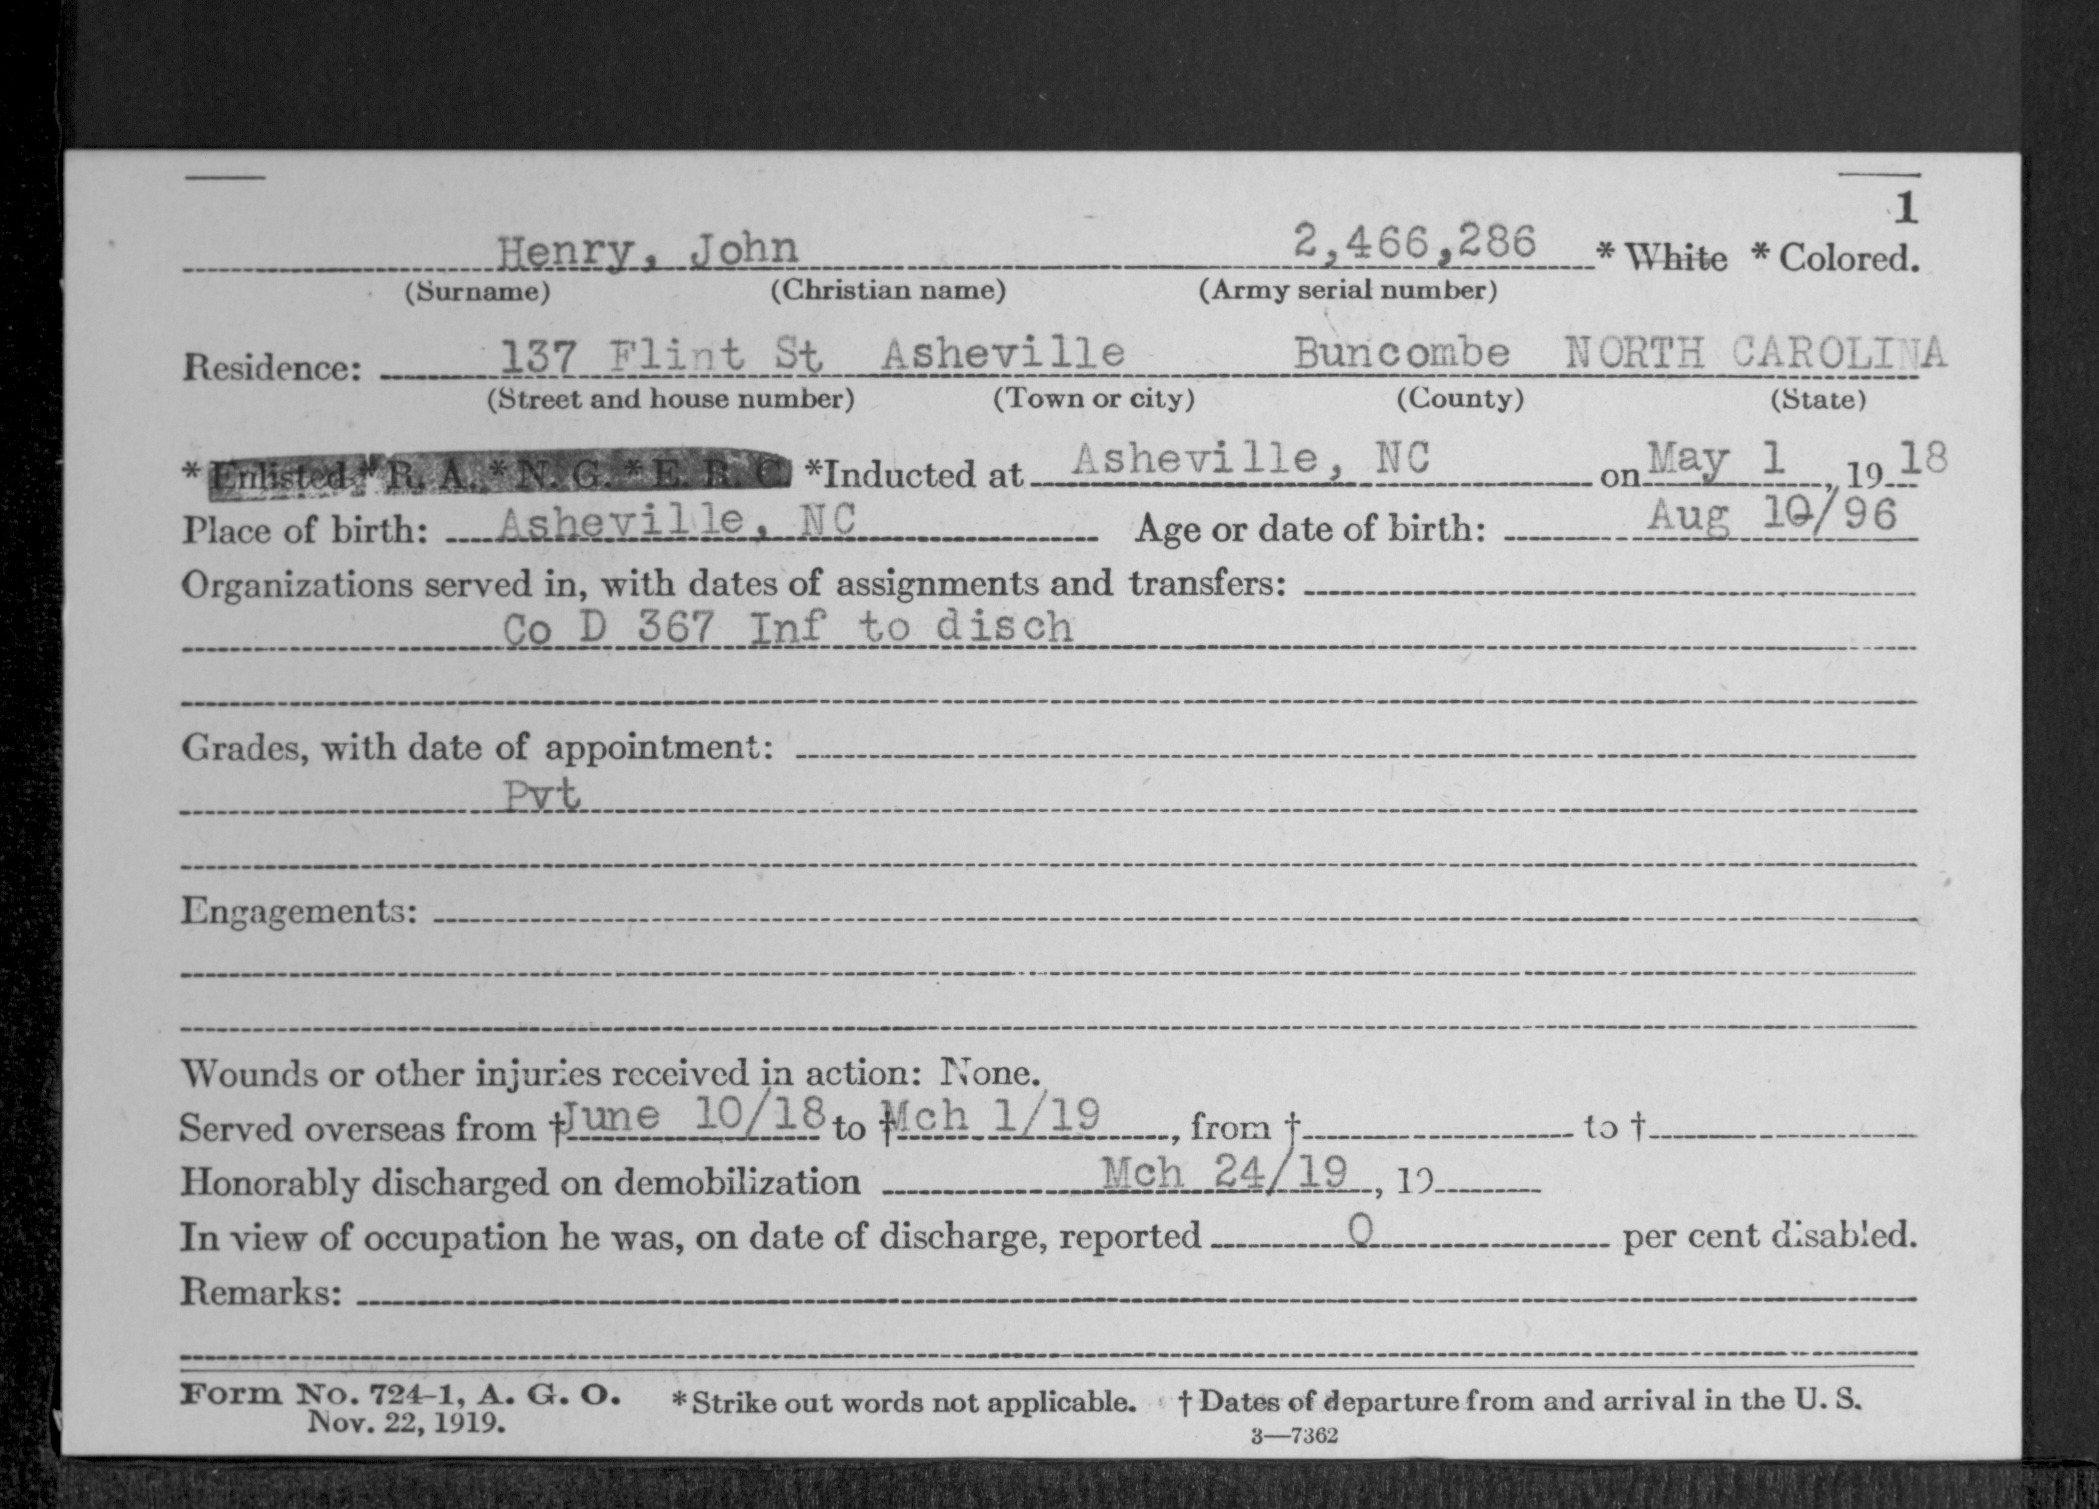 1
Henry, John 2,466,286 * White * Colored.
(Surname) (Christian name) (Army serial number)
Residence: 137 Flint St Asheville Buncombe NORTH CAROLINA
(Street and house number) (Town or city) (County) (State)
* Enlisted * R. A. * N. G. * E. R. C. *Inducted at Asheville, NC on May 1, 1918
Place of birth: Asheville, NC Age or date of birth: Aug 10/96
Organizations served in, with dates of assignments and transfers:
Co D 367 Inf to disch
Grades, with date of appointment:
Pvt
Engagements:
Wounds or other injuries received in action: None.
Served overseas from † June 10/18 to † Mch 1/19, from † to †
Honorably discharged on demobilization Mch 24/19, 19
In view of occupation he was, on date of discharge, reported 0 per cent disabled.
Remarks:
Form No. 724-1, A. G. O. * Strike out words not applicable. † Dates of departure from and arrival in the U. S.
Nov. 22, 1919.
3—7362